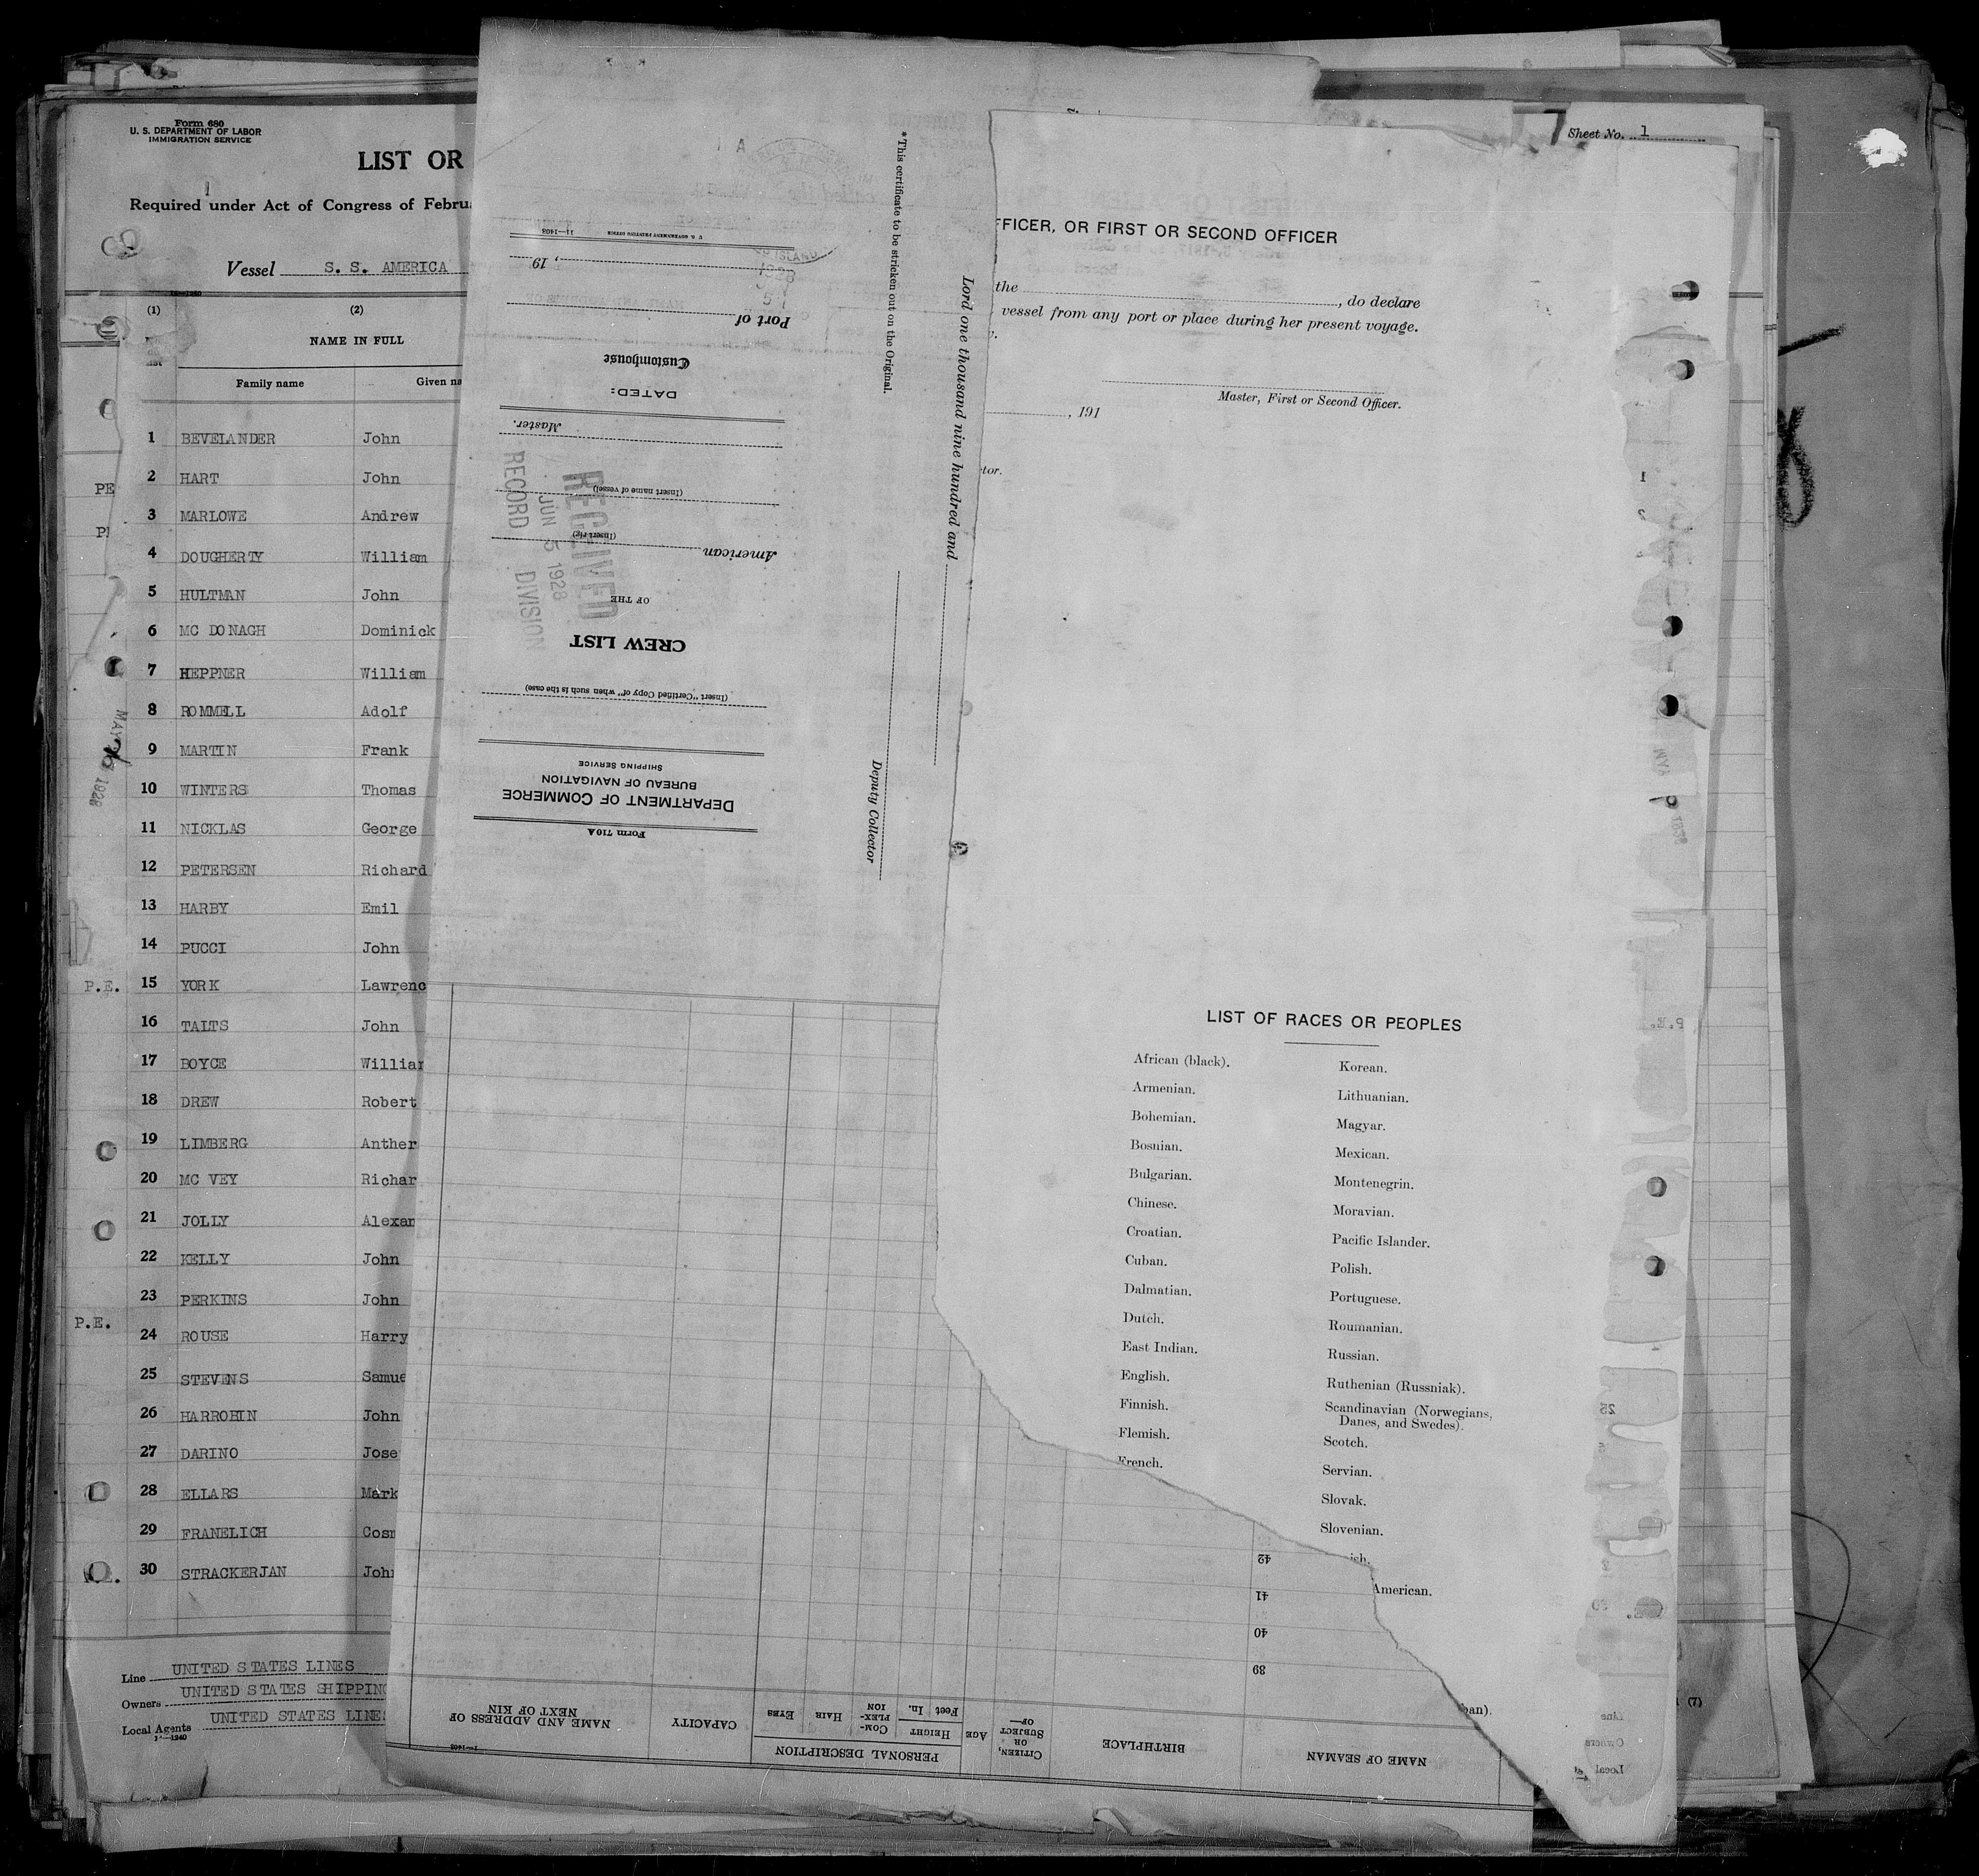 Form 680
U. S. DEPARTMENT OF LABOR
IMMIGRATION SERVICE
LIST OR
Required under Act of Congress of Febru
Vessel S. S. AMERICA
(1) (2)
NAME IN FULL
Family name Given na
1 BEVELANDER John
2 HART John
3 MARLOWE Andrew
4 DOUGHERTY William
5 HULTMAN John
6 MC DONAGH Dominick
7 HEPPNER William
8 ROMMELL Adolf
9 MARTIN Frank
10 WINTERS Thomas
11 NICKLAS George
12 PETERSEN Richard
13 HARBY Emil
14 PUCCI John
P.E. 15 YORK Lawrenc
16 TALTS John
17 BOYCE William
18 DREW Robert
19 LIMBERG Anther
20 MC VEY Richar
21 JOLLY Alexan
22 KELLY John
23 PERKINS John
P.E.
24 ROUSE Harry
25 STEVENS Samue
26 HARROHIN John
27 DARINO Jose
28 ELLARS Mark
29 FRANELICH Cosm
30 STRACKERJAN John
Line UNITED STATES LINES
Owners UNITED STATES SHIPPING
Local Agents UNITED STATES LINES
PE
MAY 1928
Form 710A
DEPARTMENT OF COMMERCE
BUREAU OF NAVIGATION
SHIPPING SERVICE
(Insert "Certified Copy of" when such is the case)
CREW LIST
OF THE
American
(Insert rig)
(Insert name of vessel)
Master.
DATED:
Customhouse
Port of
, 19
11—1403 U. S. GOVERNMENT PRINTING OFFICE
RECEIVED
JUN 5 1928
RECORD DIVISION
*This certificate to be stricken out on the Original.
Lord one thousand nine hundred and
Deputy Collector
NAME OF SEAMAN
BIRTHPLACE
CITIZEN, OR SUBJECT OF—
AGE
PERSONAL DESCRIPTION
HEIGHT
Feet In.
COM-PLEX-ION
HAIR
EYES
CAPACITY
NAME AND ADDRESS OF NEXT OF KIN
39
40
41
42
Sheet No. 1
FFICER, OR FIRST OR SECOND OFFICER
the , do declare
vessel from any port or place during her present voyage.
Master, First or Second Officer.
, 191
tor.
LIST OF RACES OR PEOPLES
African (black).
Armenian.
Bohemian.
Bosnian.
Bulgarian.
Chinese.
Croatian.
Cuban.
Dalmatian.
Dutch.
East Indian.
English.
Finnish.
Flemish.
French.
Korean.
Lithuanian.
Magyar.
Mexican.
Montenegrin.
Moravian.
Pacific Islander.
Polish.
Portuguese.
Roumanian.
Russian.
Ruthenian (Russniak).
Scandinavian (Norwegians,
Danes, and Swedes).
Scotch.
Servian.
Slovak.
Slovenian.
ish.
American.
ban).
(7)